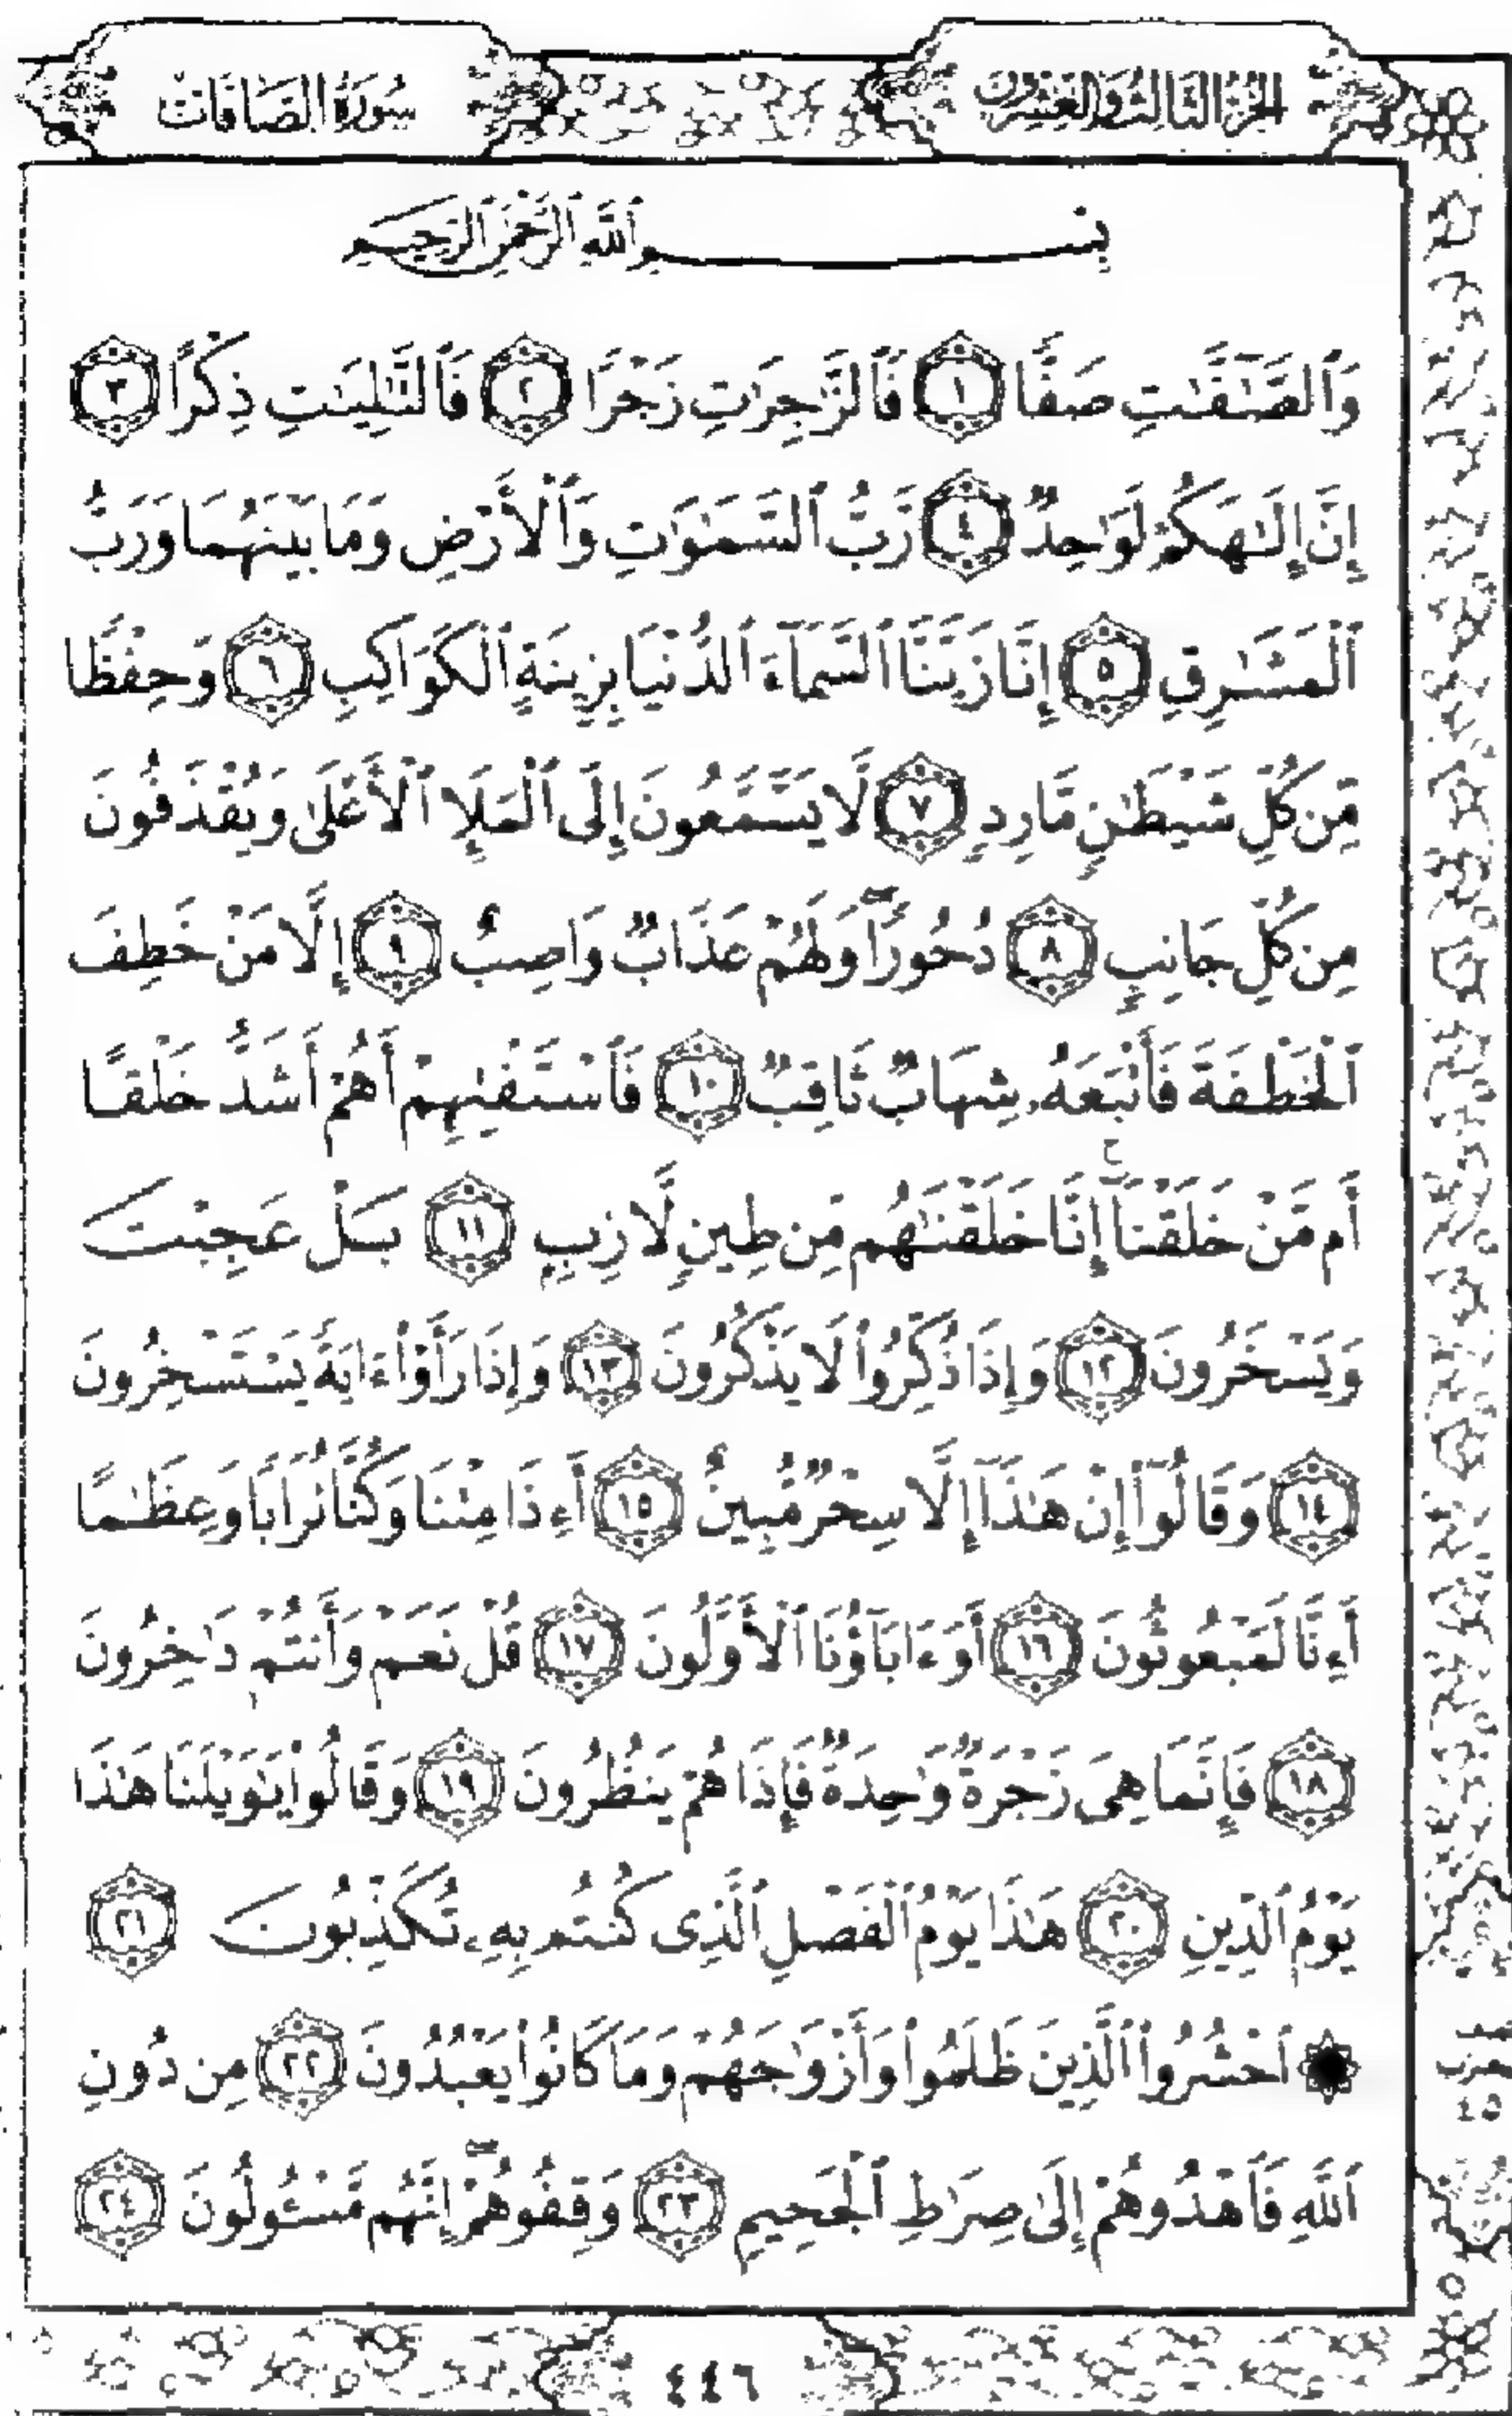 الجزء الثالث والعشرون
سورة الصافات
بِسْمِ ٱللَّهِ ٱلرَّحْمَٰنِ ٱلرَّحِيمِ
وَٱلصَّٰٓفَّٰتِ صَفًّا ١ فَٱلزَّٰجِرَٰتِ زَجْرًا ٢ فَٱلتَّٰلِيَٰتِ ذِكْرًا ٣
إِنَّ إِلَٰهَكُمْ لَوَٰحِدٌ ٤ رَّبُّ ٱلسَّمَٰوَٰتِ وَٱلْأَرْضِ وَمَا بَيْنَهُمَا وَرَبُّ
ٱلْمَشَٰرِقِ ٥ إِنَّا زَيَّنَّا ٱلسَّمَآءَ ٱلدُّنْيَا بِزِينَةٍ ٱلْكَوَاكِبِ ٦ وَحِفْظًا
مِّن كُلِّ شَيْطَٰنٍ مَّارِدٍ ٧ لَّا يَسَّمَّعُونَ إِلَى ٱلْمَلَإِ ٱلْأَعْلَىٰ وَيُقْذَفُونَ
مِن كُلِّ جَانِبٍ ٨ دُحُورًا ۖ وَلَهُمْ عَذَابٌ وَاصِبٌ ٩ إِلَّا مَنْ خَطِفَ
ٱلْخَطْفَةَ فَأَتْبَعَهُۥ شِهَابٌ ثَاقِبٌ ١٠ فَٱسْتَفْتِهِمْ أَهُمْ أَشَدُّ خَلْقًا
أَم مَّنْ خَلَقْنَآ ۚ إِنَّا خَلَقْنَٰهُم مِّن طِينٍ لَّازِبٍ ١١ بَلْ عَجِبْتَ
وَيَسْخَرُونَ ١٢ وَإِذَا ذُكِّرُوا۟ لَا يَذْكُرُونَ ١٣ وَإِذَا رَأَوْا۟ ءَايَةً يَسْتَسْخِرُونَ
١٤ وَقَالُوٓا۟ إِنْ هَٰذَآ إِلَّا سِحْرٌ مُّبِينٌ ١٥ أَءِذَا مِتْنَا وَكُنَّا تُرَابًا وَعِظَٰمًا
أَءِنَّا لَمَبْعُوثُونَ ١٦ أَوَءَابَآؤُنَا ٱلْأَوَّلُونَ ١٧ قُلْ نَعَمْ وَأَنتُمْ دَٰخِرُونَ
١٨ فَإِنَّمَا هِىَ زَجْرَةٌ وَٰحِدَةٌ فَإِذَا هُمْ يَنظُرُونَ ١٩ وَقَالُوا۟ يَٰوَيْلَنَا هَٰذَا
يَوْمُ ٱلدِّينِ ٢٠ هَٰذَا يَوْمُ ٱلْفَصْلِ ٱلَّذِى كُنتُم بِهِۦ تُكَذِّبُونَ ٢١
۞ ٱحْشُرُوا۟ ٱلَّذِينَ ظَلَمُوا۟ وَأَزْوَٰجَهُمْ وَمَا كَانُوا۟ يَعْبُدُونَ ٢٢ مِن دُونِ
ٱللَّهِ فَٱهْدُوهُمْ إِلَىٰ صِرَٰطِ ٱلْجَحِيمِ ٢٣ وَقِفُوهُمْ ۖ إِنَّهُم مَّسْـُٔولُونَ ٢٤
الحزب
٤٥
٤٤٦